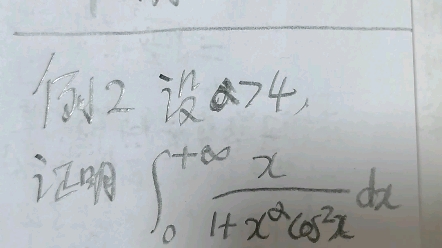 例2 设α>4,
证明 ∫₀^{+∞} x/(1+x^α cos²x) dx